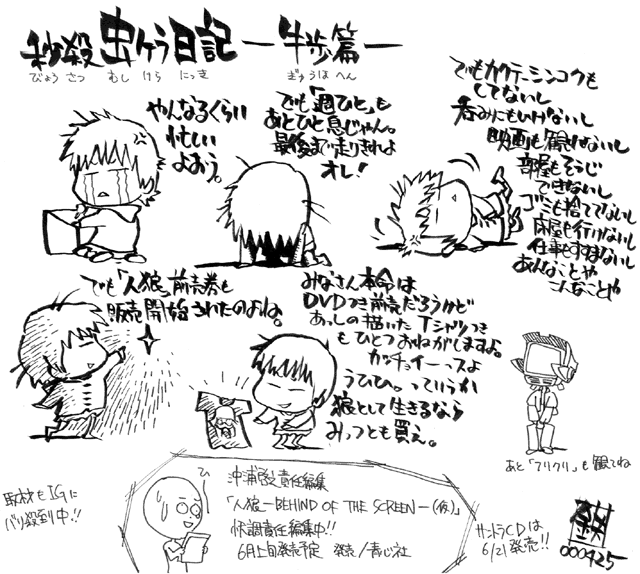 秒殺 虫ケラ日記 ー牛歩篇ー
びょう さつ むし けら にっき ぎゅうほ へん
やんなるくらい
忙しい
よおう。
でも「週ひと」も
あとひと息じゃん。
最後まで走りきれよ
オレ!
でもカクテーシンコクも
してないし
呑みにもいけないし
映画も観れないし
部屋もそうじ
できないし
ゴミも捨ててないし
床屋も行けないし
仕事もすすまないし
あんなことや
こんなことや
でも「人狼」前売券も
販売開始されたのよね。
みなさん本命は
DVDつき前売だろうけど
あっしの描いたTシャツつき
もひとつおねがしますよ。
カッチョイーっスよ
うひひ。っていうか
狼として生きるなら
みっつとも買え。
あと「フリクリ」も観てね
取材もIGに
バリ殺到中!!
ひ
沖浦啓之責任編集
「人狼ーBEHIND OF THE SCREENー(仮)」
快調責任編集中!!
6月上旬発売予定 発売/青心社
サントラCDは
6/21発売!!
鉄
000425